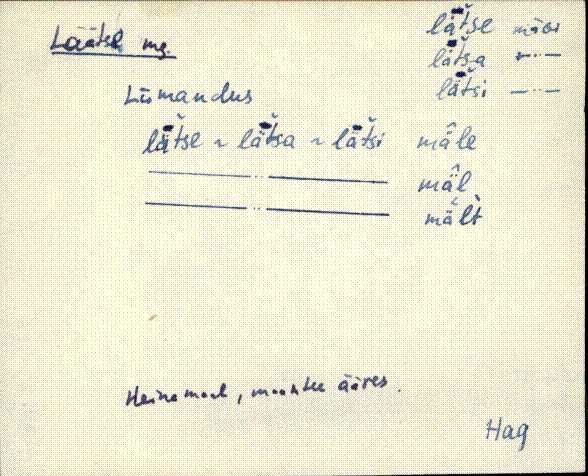 Läätse mg.
lätše mägi
lätša —..—
lätši —..—
Liimandus
lätše ~ lätša ~ lätši mäle
—————..————— mäl
—————..————— mält
Heinamaal, maantee ääres.
Hag